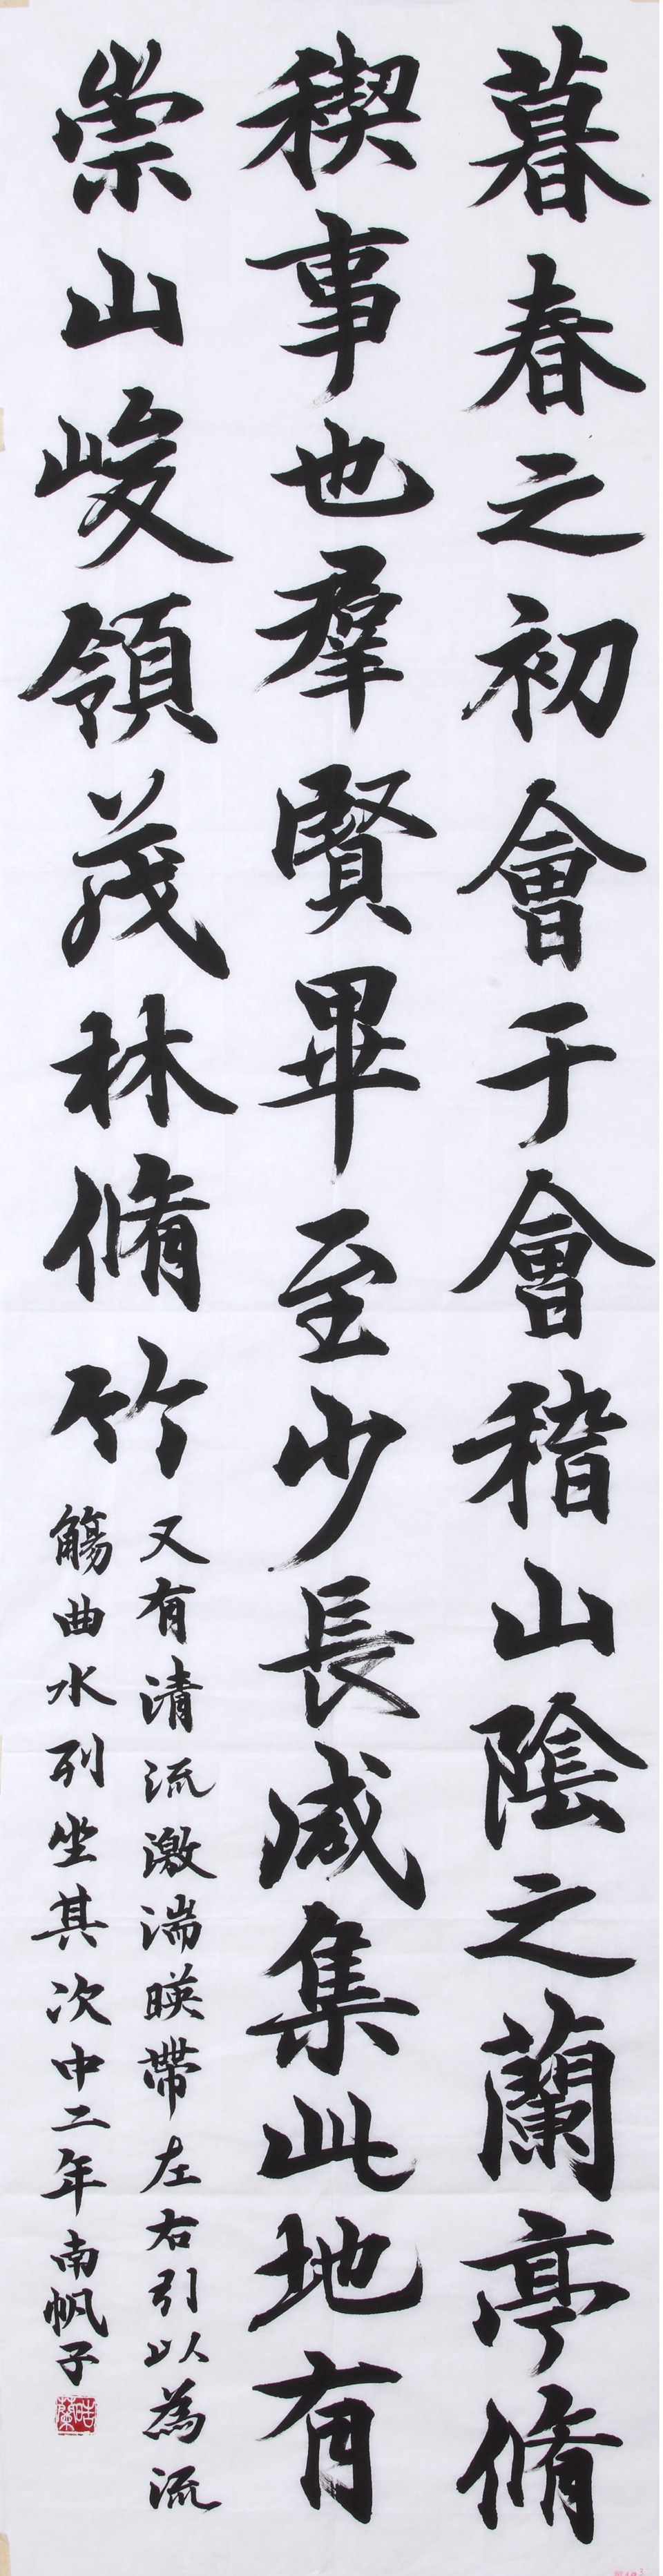 暮春之初會于會稽山陰之蘭亭脩
稧事也羣賢畢至少長咸集此地有
崇山峻領茂林脩竹
又有清流激湍暎帶左右引以為流
觴曲水列坐其次中二年南帆子